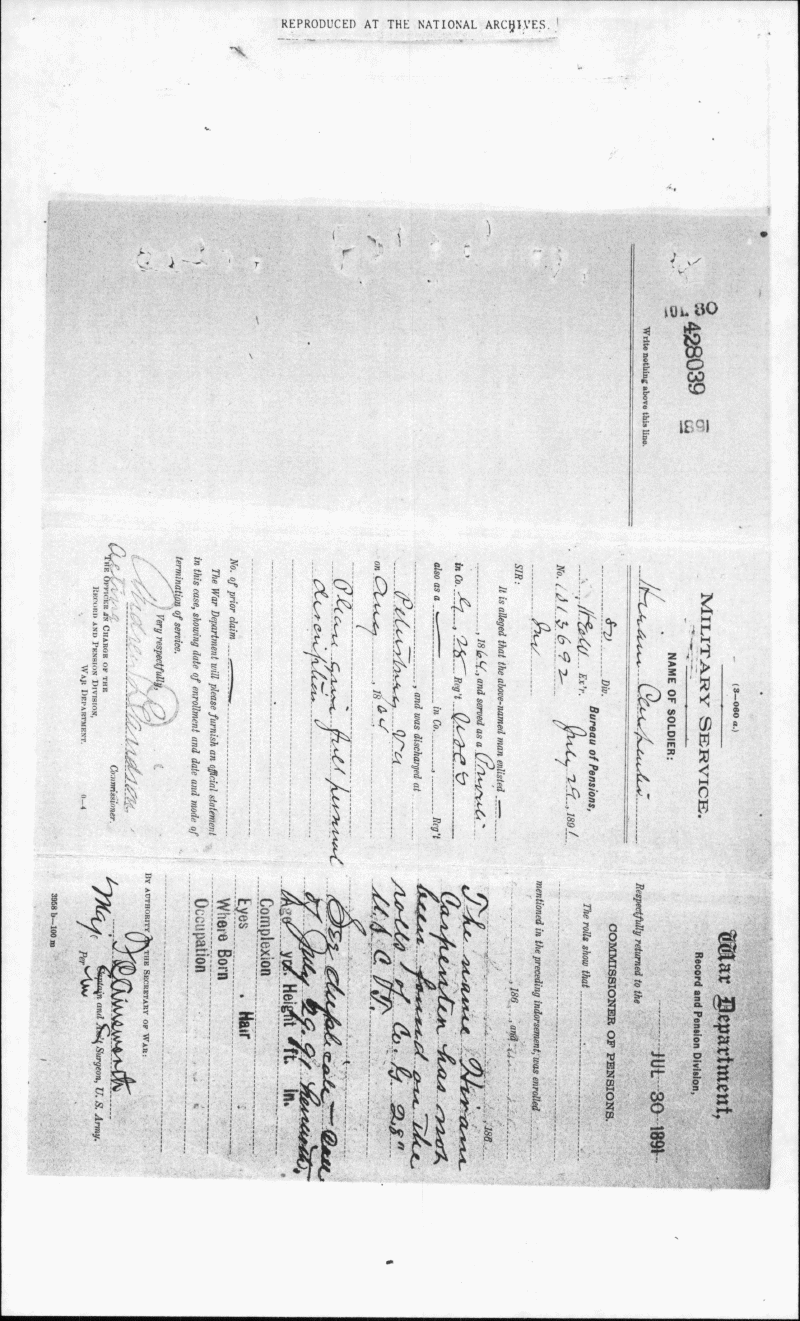 REPRODUCED AT THE NATIONAL ARCHIVES.
JUL 30
428039
1891
Write nothing above this line.
(3—060 a.)
MILITARY SERVICE.
NAME OF SOLDIER:
Hiram Carpenter
So Div.
Ex'r.
Bureau of Pensions,
No. 1313692 July 29, 1891
Inv
SIR:
It is alleged that the above-named man enlisted —
, 1864, and served as a Private
in Co. G, 28 Reg't USCS
also as a — in Co. Reg't
, and was discharged at
Petersburg Va
on Aug , 1864
Please give full personal
description
No. of prior claim —
The War Department will please furnish an official statement
in this case, showing date of enrollment and date and mode of
termination of service.
Very respectfully,
Acting Commissioner.
THE OFFICER IN CHARGE OF THE
RECORD AND PENSION DIVISION,
WAR DEPARTMENT.
0—4
War Department,
Record and Pension Division,
JUL 30 1891
Respectfully returned to the
COMMISSIONER OF PENSIONS.
The rolls show that
mentioned in the preceding indorsement, was enrolled
, 186 , and 186
The name Hiram
Carpenter has not
been found on the
rolls of Co. G 28"
U.S.C.T.
See duplicate — call
of July 29. 91 herewith.
Age yrs Height ft. in.
Complexion
Eyes , Hair
Where Born
Occupation
BY AUTHORITY OF THE SECRETARY OF WAR:
F C Ainsworth
Maj. Captain and Ass't Surgeon, U. S. Army.
Per
3958 b—100 m